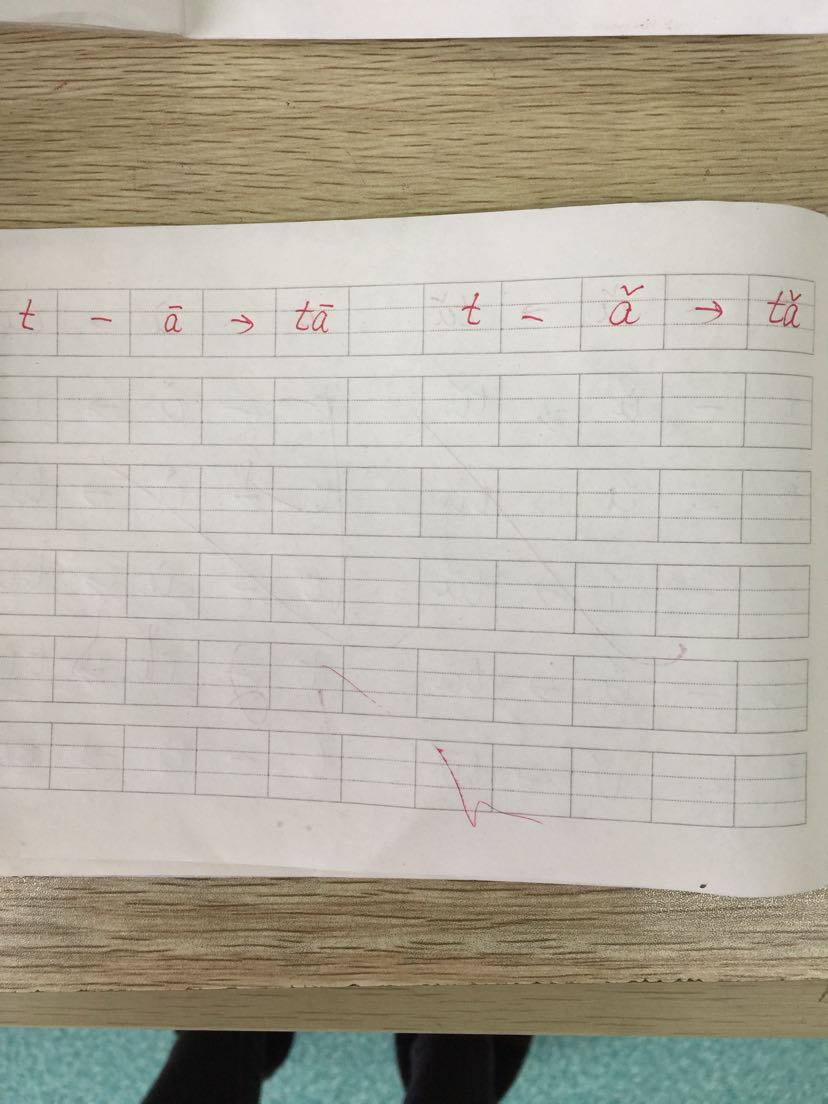 t - ā → tā t - ǎ → tǎ